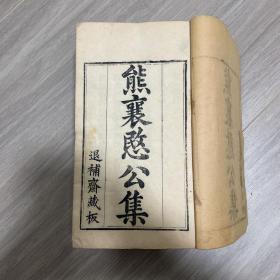 熊襄愍公集
退補齋藏板